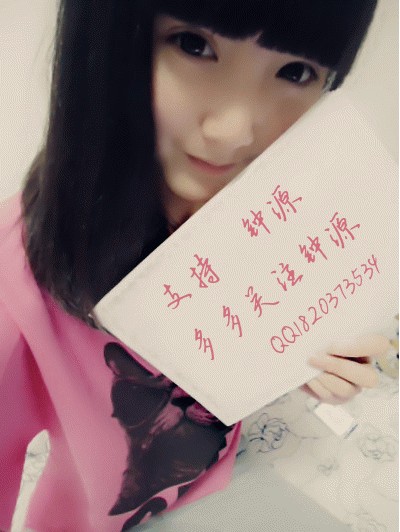 支持 钟源
多多关注钟源
QQ1820373534